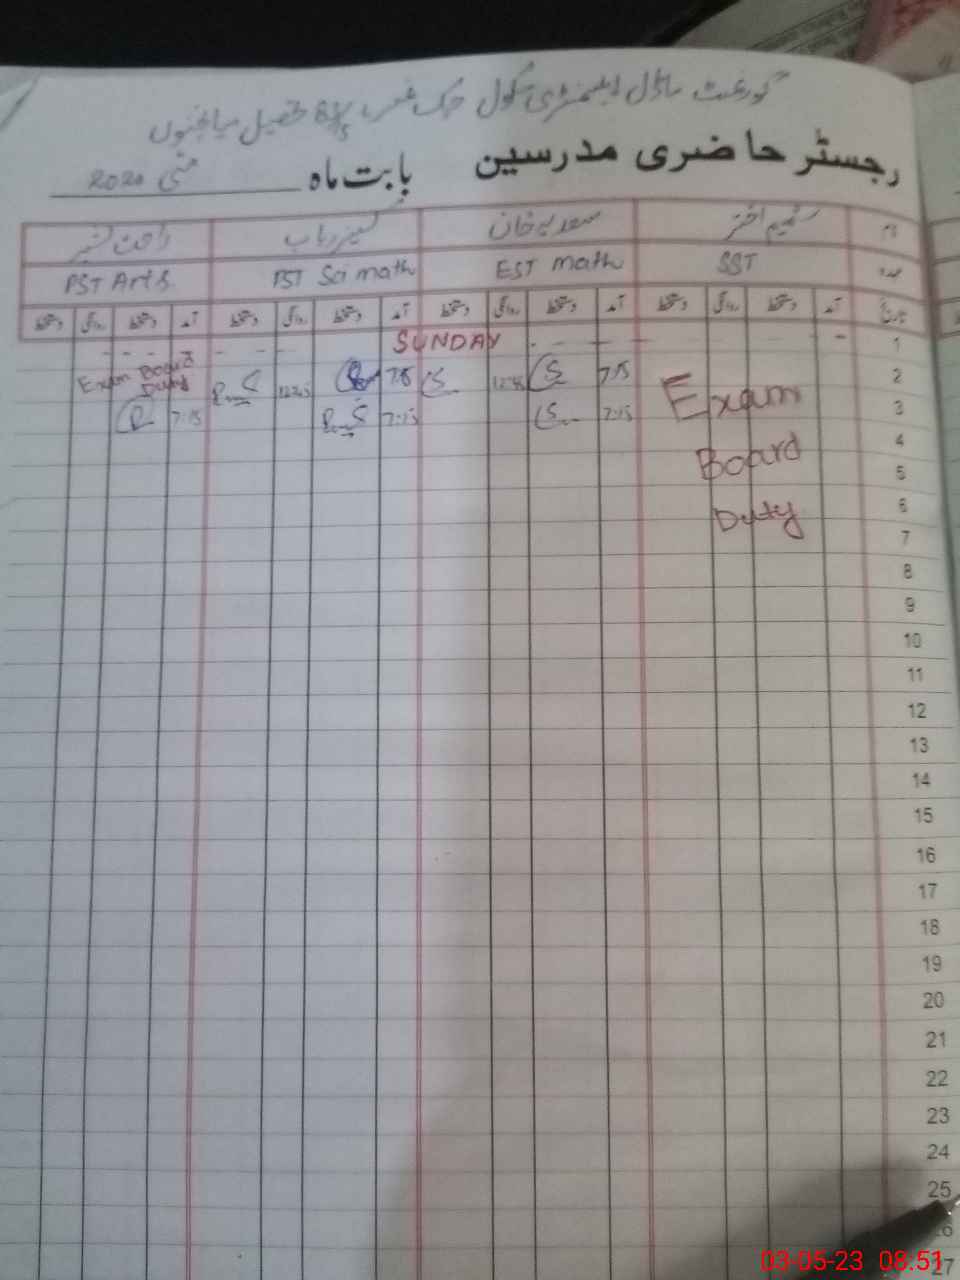 گورنمنٹ ماڈل ایلیمنٹری سکول چک نمبر 81/5 تحصیل میانچنوں
رجسٹر حاضری مدرسین بابت ماہ مئی 2020
نام شمیم اختر سعدیہ خان کنیز رباب راحت کنیز
عہدہ SST EST math PST Sci math PST Arts.
تاریخ آمد دستخط روانگی دستخط آمد دستخط روانگی دستخط آمد دستخط روانگی دستخط آمد دستخط روانگی دستخط
1 SUNDAY
2 7:15 12:45 12:45 Exam Board Duty
3 Exam 7:15 7:15 7:15
4
Board
5
6
Duty
7
8
9
10
11
12
13
14
15
16
17
18
19
20
21
22
23
24
25
27
03-05-23 08:51